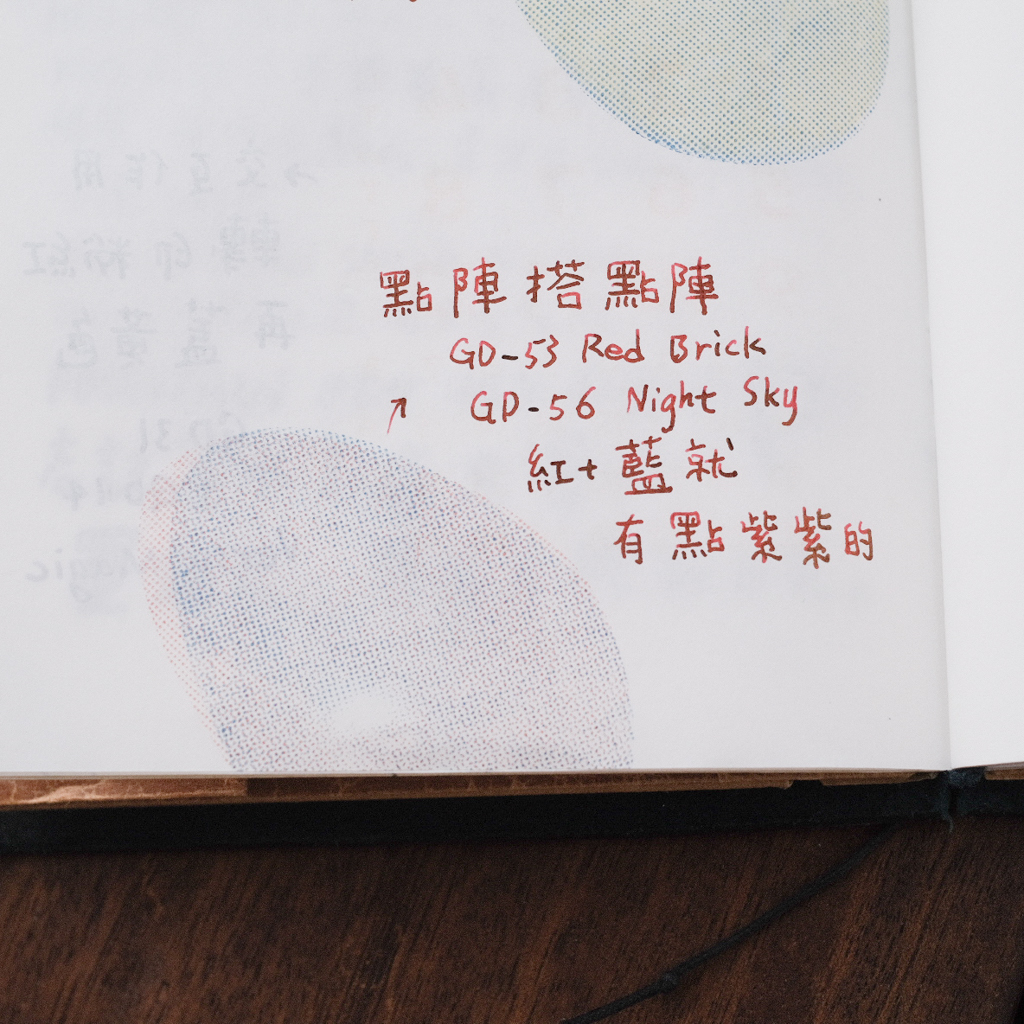 點陣搭點陣
GD-53 Red Brick
↗ GD-56 Night Sky
紅+藍就
有點紫紫的